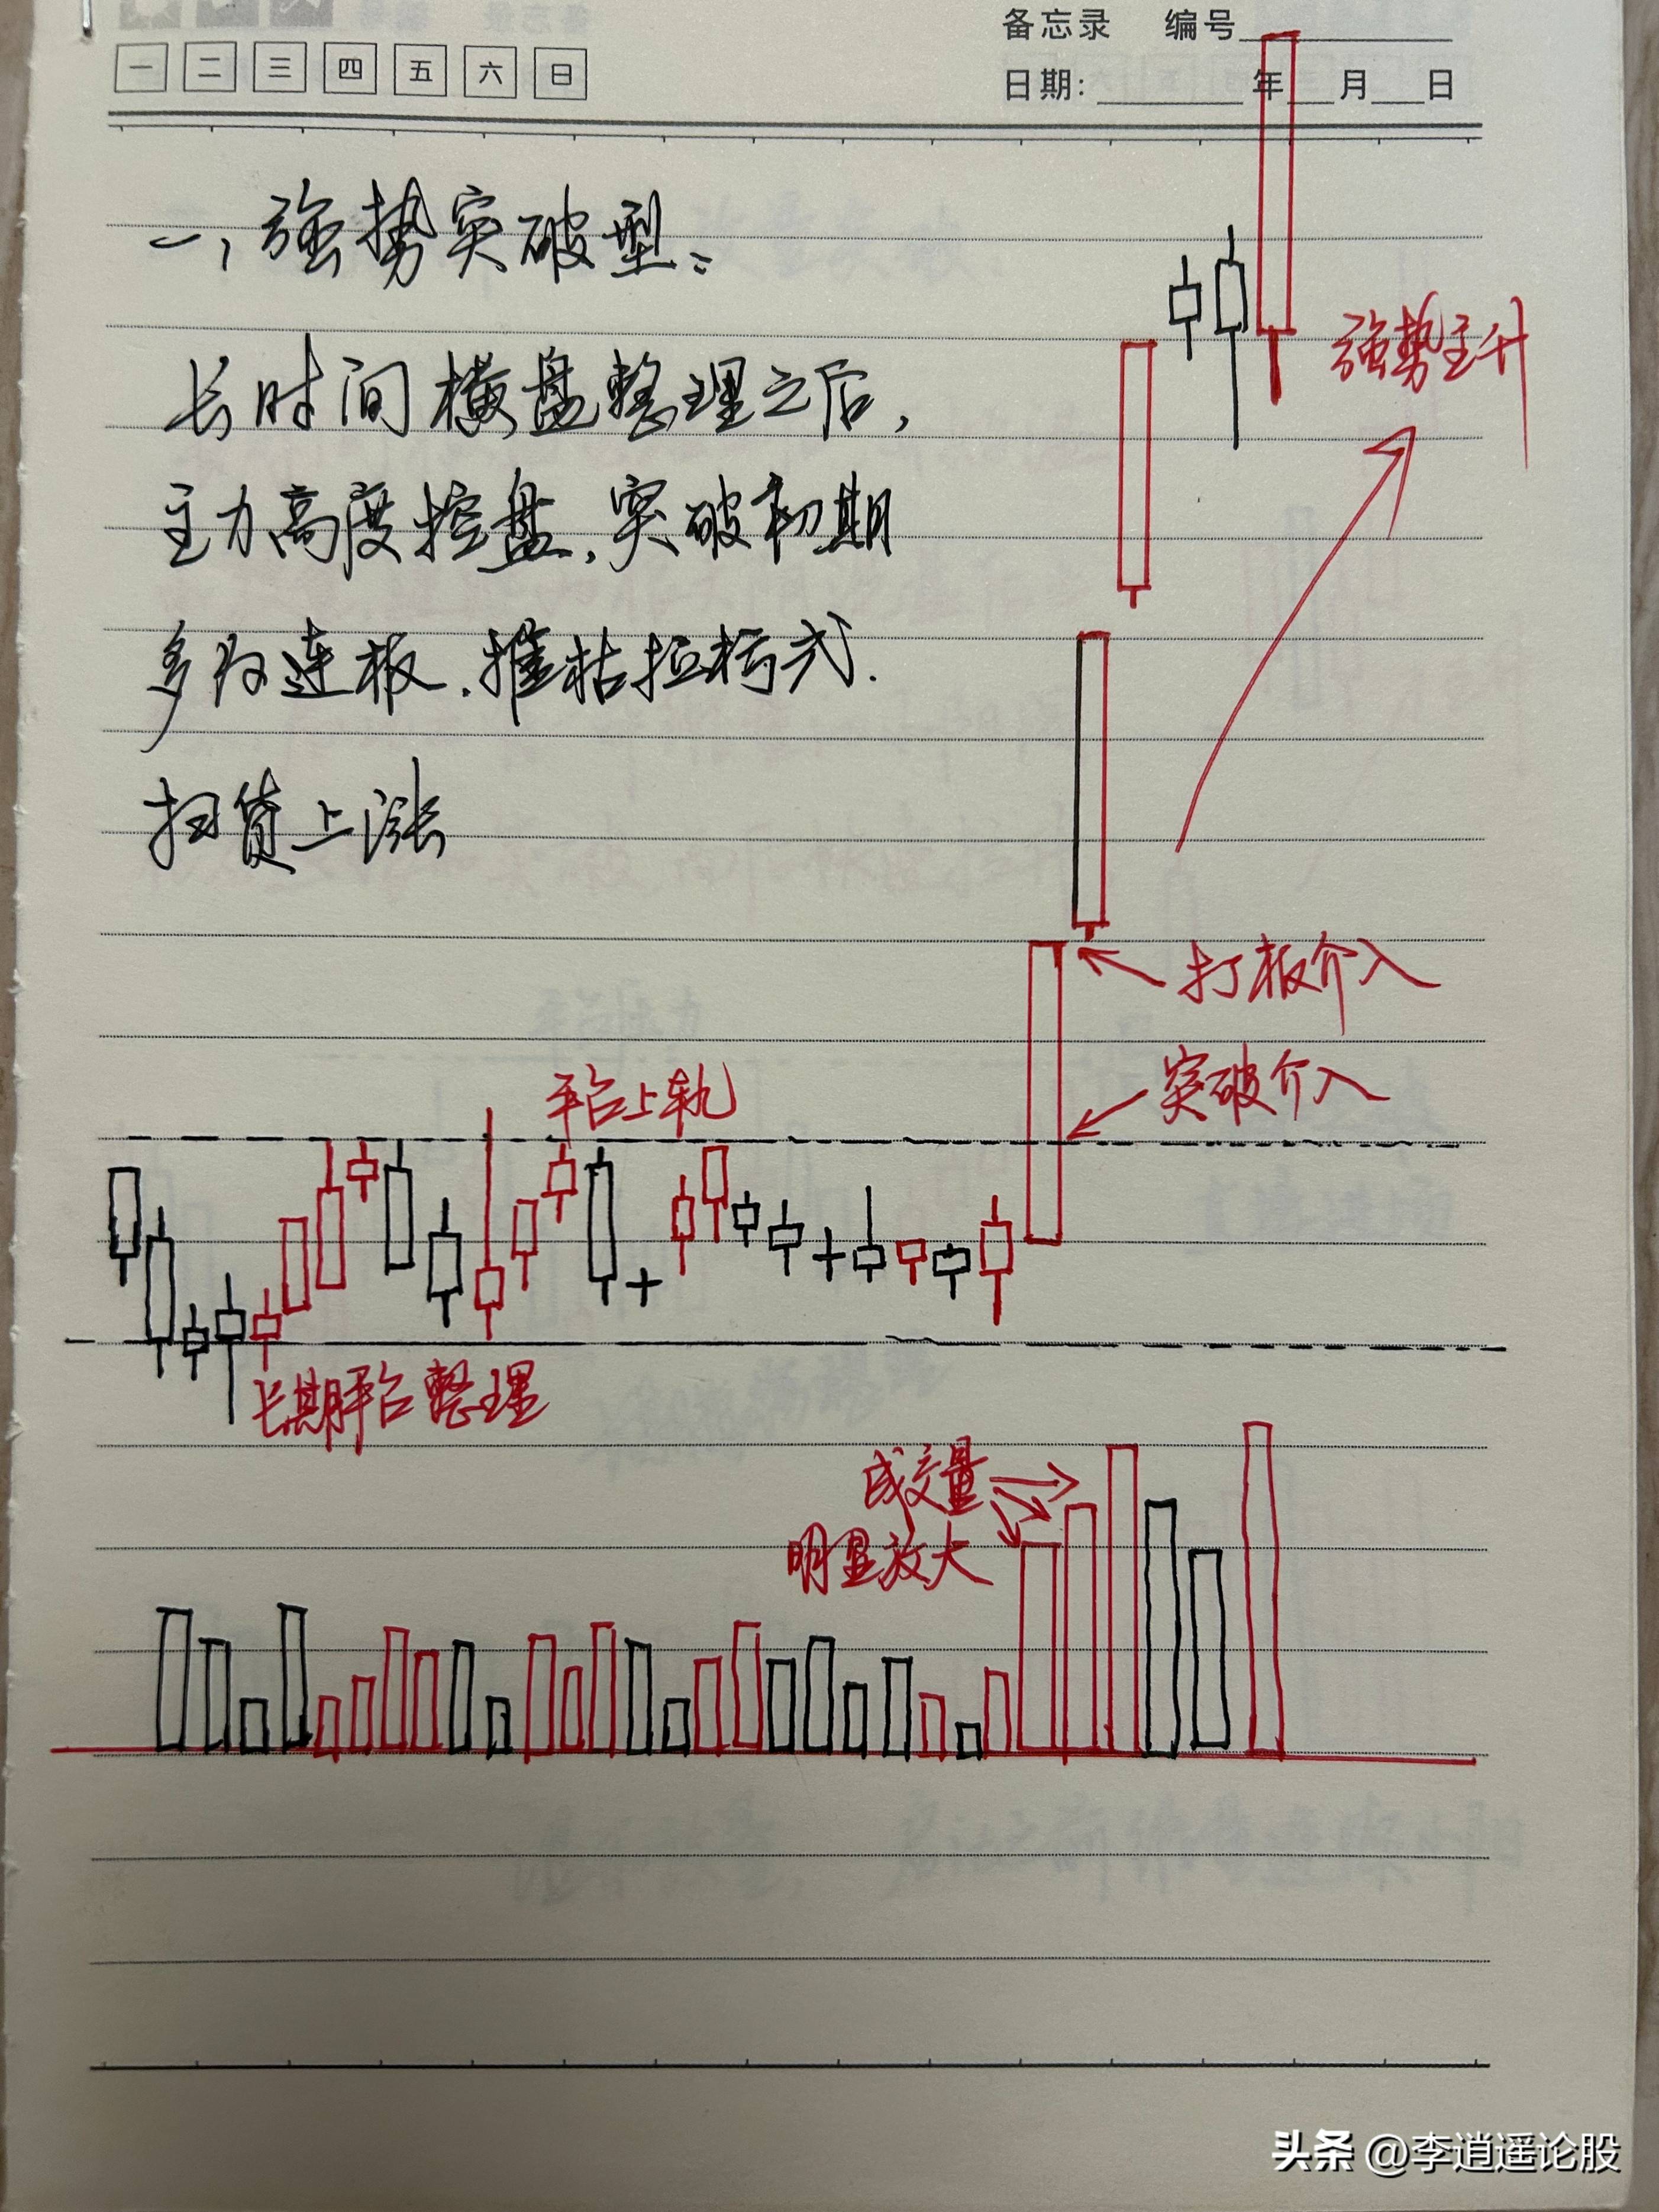 备忘录 编号
一 二 三 四 五 六 日
日期: 年 月 日
一,强势突破型:
长时间横盘整理之后,
主力高度控盘,突破初期
多为连板.摧枯拉朽式.
扫货上涨
强势主升
打板介入
突破介入
平台上轨
长期平台整理
成交量
明显放大
头条 @李逍遥论股